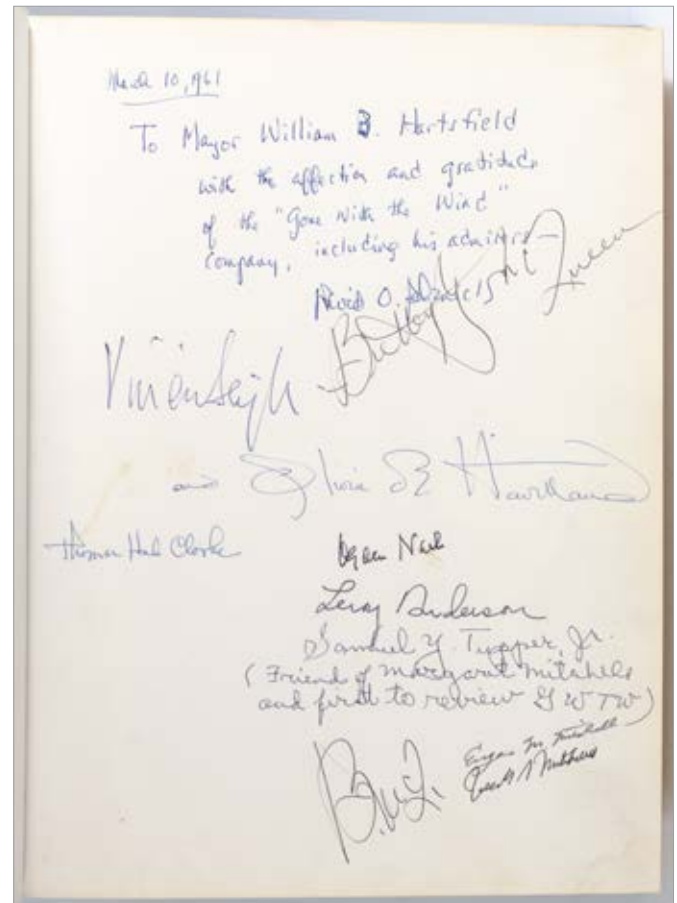 March 10, 1961
To Mayor William B. Hartsfield
with the affection and gratitude
of the "Gone With the Wind"
Company, including his admirer—
David O. Selznick
Butterfly McQueen
Vivien Leigh
and Olivia de Havilland
Thomas Hal Clarke
Ogden Nash
Leroy Anderson
Samuel Y. Tupper, Jr.
(Friend of Margaret Mitchells
and first to review GWTW)
B. McQ.
Mitchell